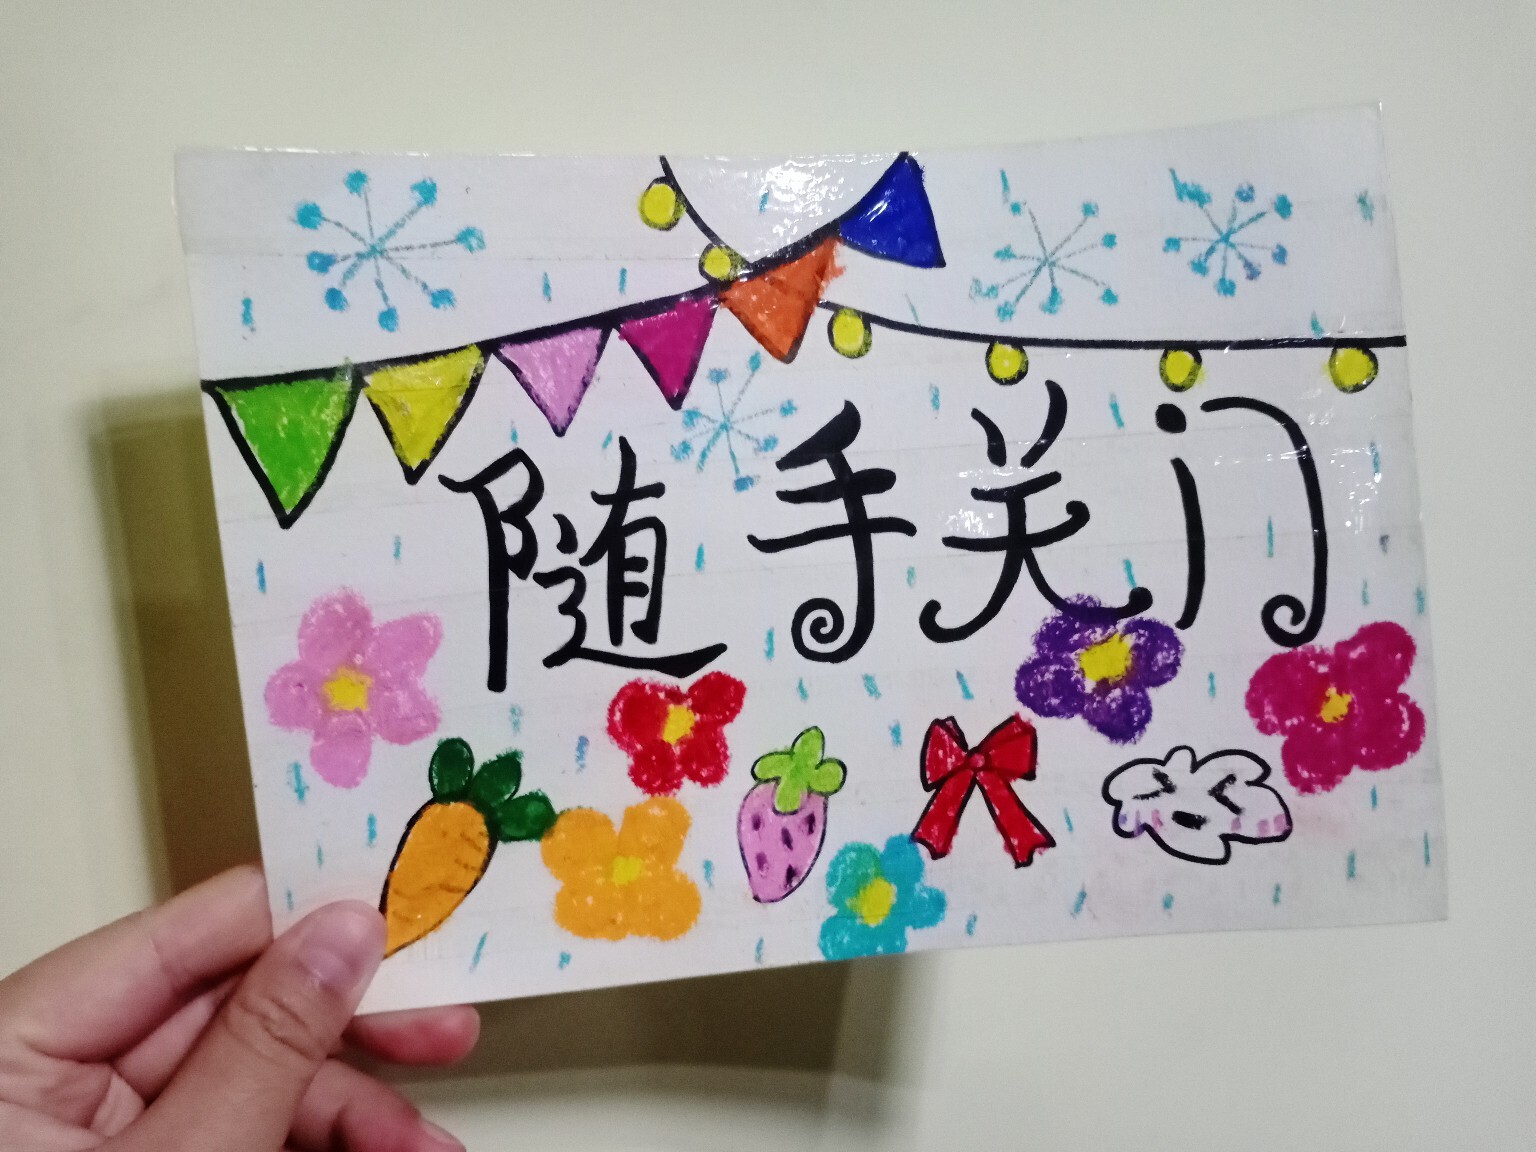 随手关门